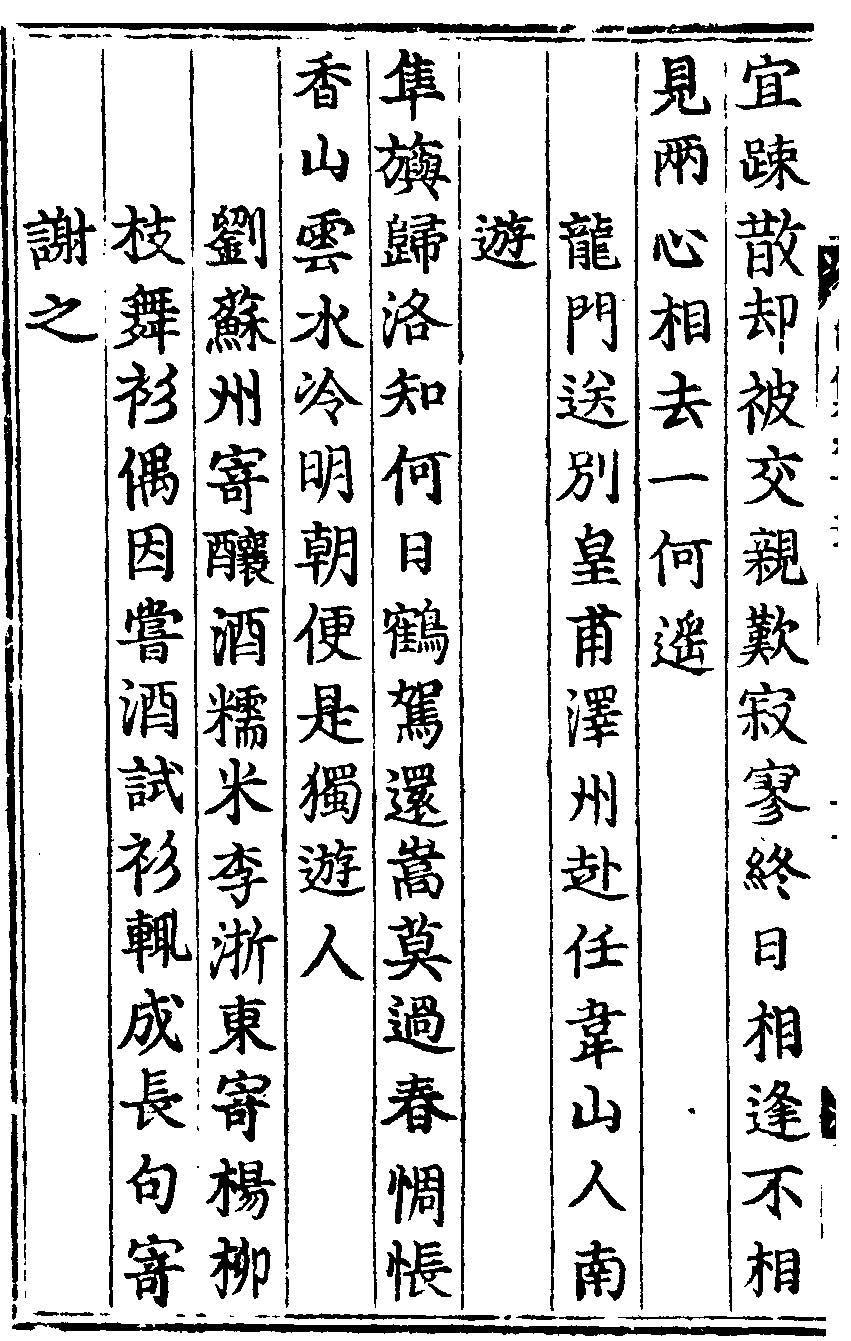 宜踈散却被交親歎寂寥終日相逢不相
見兩心相去一何遥
龍門送別皇甫澤州赴任韋山人南
遊
隼旟歸洛知何日鶴駕還嵩莫過春惆悵
香山雲水冷明朝便是獨遊人
劉蘇州寄釀酒糯米李浙東寄楊柳
枝舞衫偶因嘗酒試衫輙成長句寄
謝之